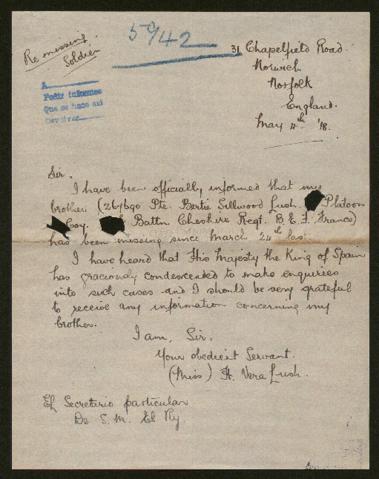 Re missing
Soldier
5942
31 Chapelfield Road.
Norwich
Norfolk
England.
May 4th '18.
A
Pedir informes
Que se hace así
Sir.
I have been officially informed that my
brother (Pte. Bertie Sillwood Lush. Platoon
Coy. Battn. Cheshire Regt. B.E.F. France)
has been missing since March 24th last.
I have heard that His Majesty the King of Spain
has graciously condescended to make enquiries
into such cases and I should be very grateful
to receive any information concerning my
brother.
I am, Sir,
Your obedient Servant.
(Miss) H. Vera Lush.
El Secretario particular
De S. M. El Rey